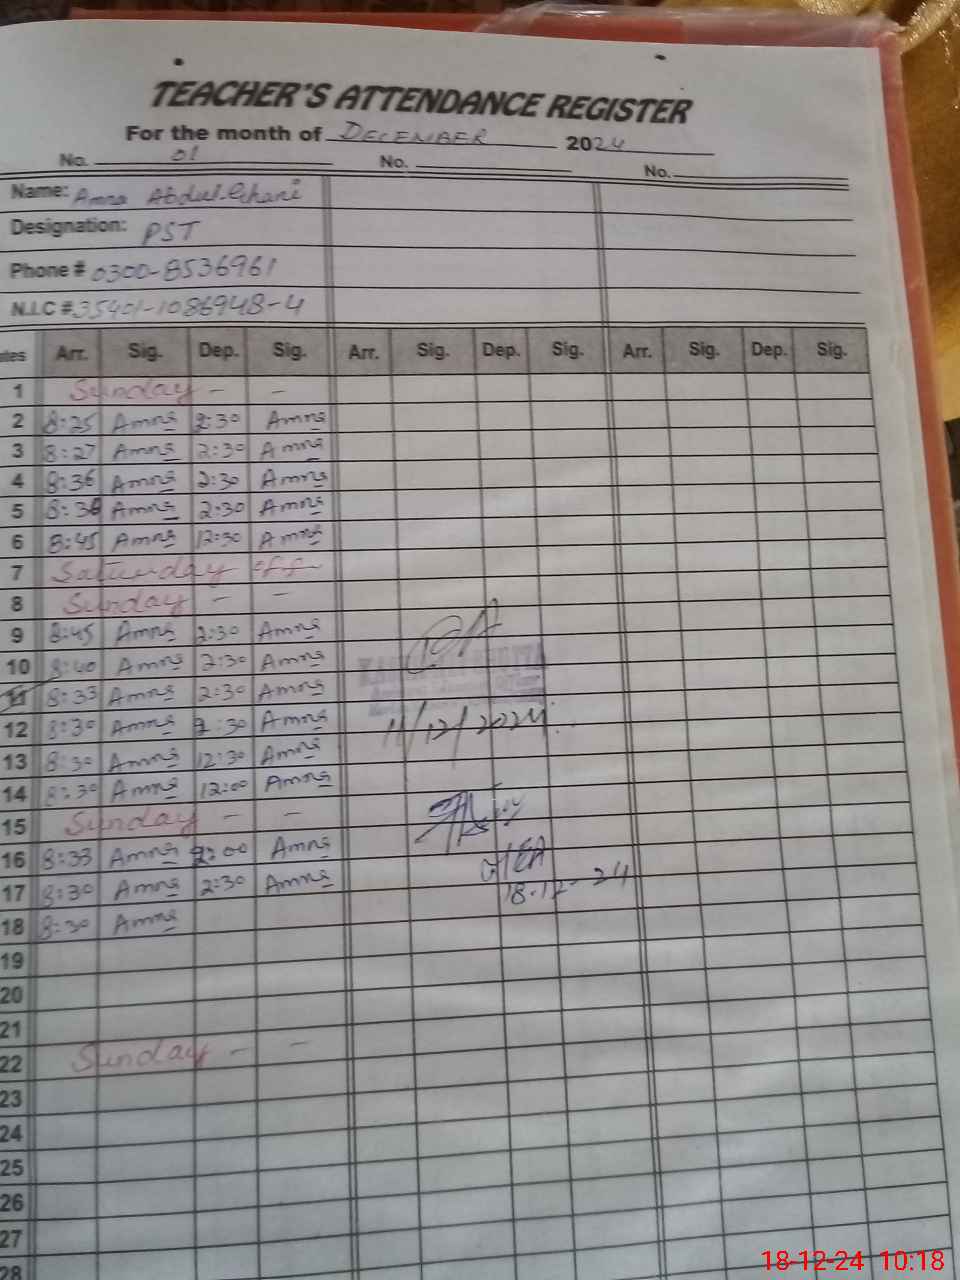 TEACHER'S ATTENDANCE REGISTER
For the month of DECEMBER 2024
No. 01 No. No.
Name: Amna Abdul Ghani
Designation: PST
Phone # 0300-8536961
N.I.C # 35401-1086948-4
ates Arr. Sig. Dep. Sig. Arr. Sig. Dep. Sig. Arr. Sig. Dep. Sig.
1 Sunday - -
2 8:25 Amna 2:30 Amna
3 8:27 Amna 2:30 Amna
4 8:36 Amna 2:30 Amna
5 8:36 Amna 2:30 Amna
6 8:45 Amna 12:30 Amna
7 Saturday off
8 Sunday - -
9 8:45 Amna 2:30 Amna
10 8:40 Amna 2:30 Amna
11 8:33 Amna 2:30 Amna
12 8:30 Amna 2:30 Amna 11/12/2024
13 8:30 Amna 12:30 Amna
14 8:30 Amna 12:00 Amna
15 Sunday - -
16 8:33 Amna 2:00 Amna
17 8:30 Amna 2:30 Amna 18-12-24
18 8:30 Amna
19
20
21
22 Sunday - -
23
24
25
26
27
28
18-12-24 10:18